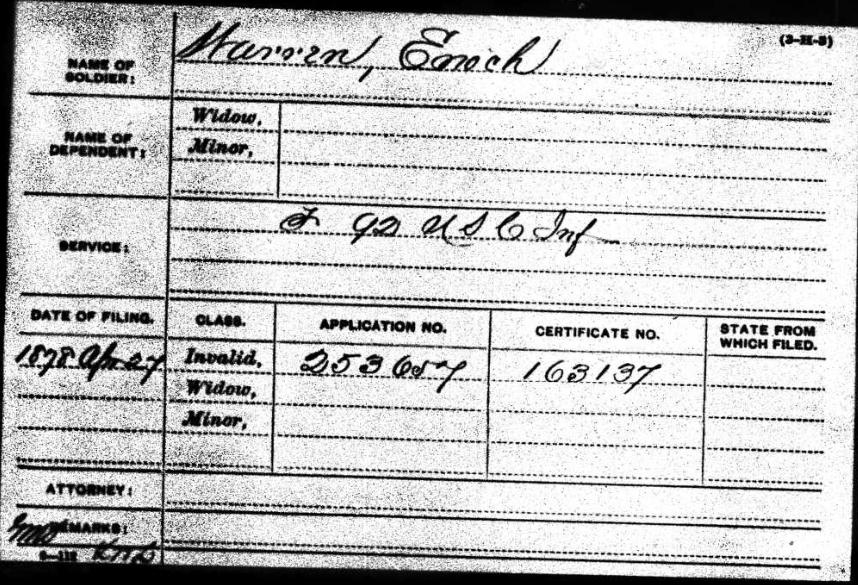 (3-H-3)
NAME OF SOLDIER: Warren, Enoch
NAME OF DEPENDENT: Widow,
Minor,
SERVICE: F 92 U S C Inf
DATE OF FILING. CLASS. APPLICATION NO. CERTIFICATE NO. STATE FROM WHICH FILED.
1878 Apr 27 Invalid, 253657 163137
Widow,
Minor,
ATTORNEY:
REMARKS: